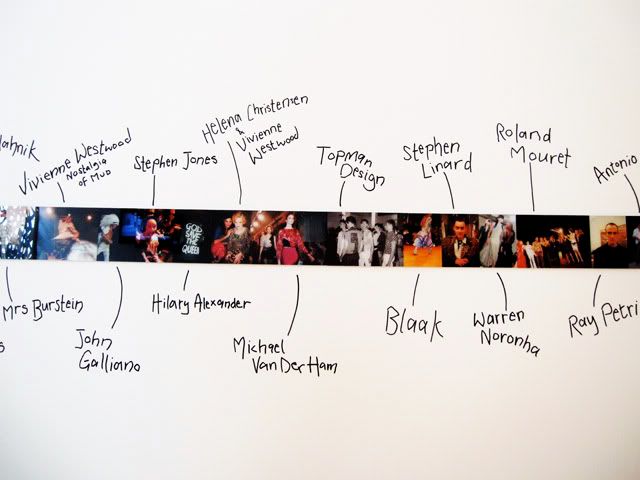 Vivienne Westwood
Nostalgia
of Mud
Stephen Jones
Helena Christensen
&
Vivienne
Westwood
Topman
Design
Stephen
Linard
Roland
Mouret
Antonio
GOD
SAVE
THE
QUEEN
Mrs Burstein
John
Galliano
Hilary Alexander
Michael
Van Der Ham
Blaak
Warren
Noronha
Ray Petri